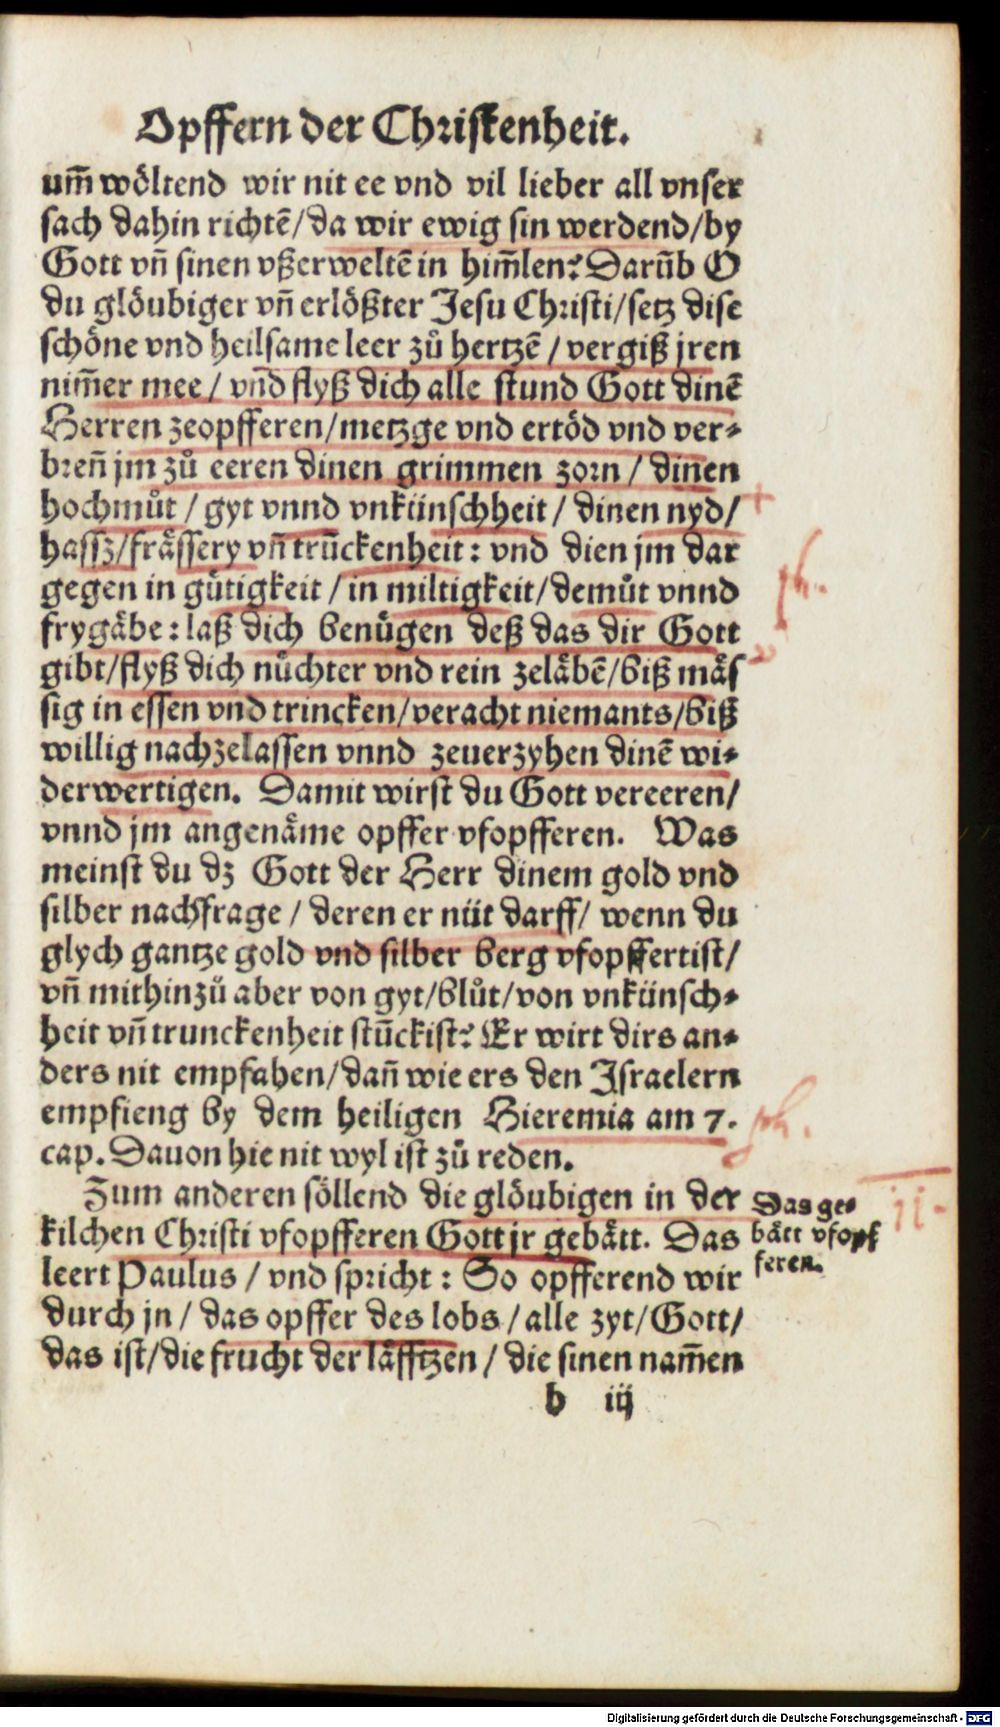 Opffern der Christenheit.
um̃ wöltend wir nit ee vnd vil lieber all vnser
sach dahin richtẽ/da wir ewig sin werdend/by
Gott vñ sinen vßerweltẽ in him̃len? Darũb O
du glöubiger vñ erlößter Jesu Christi/setz dise
schöne vnd heilsame leer zů hertzẽ / vergiß jren
nim̃er mee / vñd flyß dich alle stund Gott dinẽ
Herren zeopfferen/metzge vnd ertöd vnd ver-
breñ jm zů eeren dinen grimmen zorn / dinen
hochmůt / gyt vnnd vnkünschheit / dinen nyd/
hassz/frässery vñ trückenheit: vnd dien jm dar
gegen in gütigkeit / in miltigkeit/demůt vnnd
frygäbe: laß dich benügen deß das dir Gott
gibt/flyß dich nüchter vnd rein zeläbẽ/biß mäs
sig in essen vnd trincken/veracht niemants/biß
willig nachzelassen vnnd zeuerzyhen dinẽ wi-
derwertigen. Damit wirst du Gott vereeren/
vnnd jm angenäme opffer vfopfferen. Was
meinst du dz Gott der Herr dinem gold vnd
silber nachfrage / deren er nüt darff/ wenn du
glych gantze gold vnd silber berg vfopffertist/
vñ mithinzů aber von gyt/blůt/von vnkünsch-
heit vñ trunckenheit stückist? Er wirt dirs an-
ders nit empfahen/dañ wie ers den Israelern
empfieng by dem heiligen Hieremia am 7.
cap. Dauon hie nit wyl ist zů reden.
Zum anderen söllend die glöubigen in der
kilchen Christi vfopfferen Gott jr gebätt. Das
leert Paulus / vnd spricht: So opfferend wir
durch jn / das opffer des lobs / alle zyt/Gott/
das ist/die frucht der läfftzen / die sinen nam̃en
b iij
Das ge-
bätt vfopf
feren.
ii-
Digitalisierung gefördert durch die Deutsche Forschungsgemeinschaft - DFG